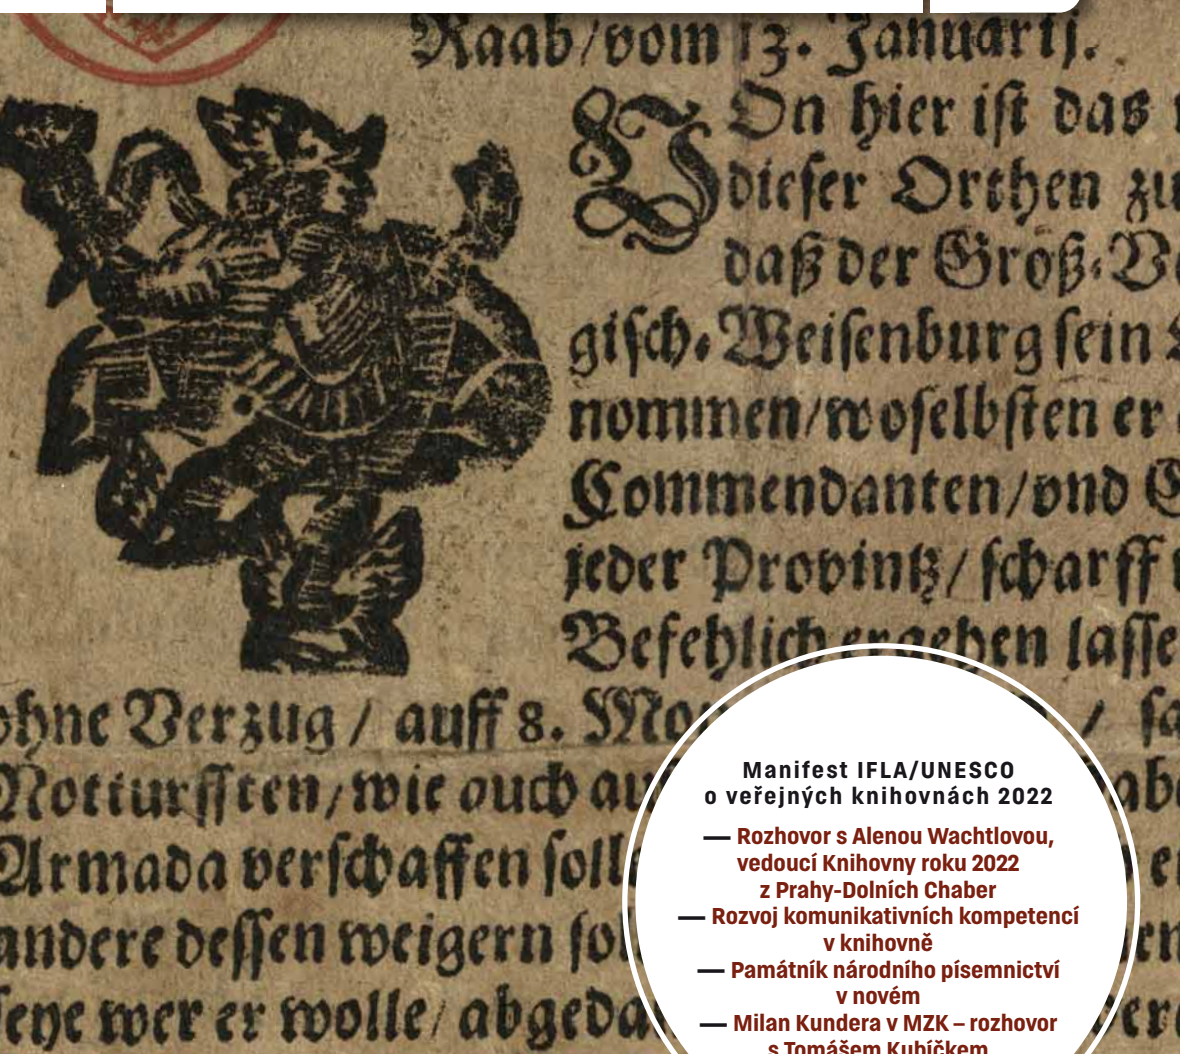 Raab/vom 13. Januarij.
VOn hier ist das
dieser Orthen zu
daß der Groß-Ve
gisch-Weisenburg sein
nommen/woselbsten er
Commendanten/vnd
jeder Provintz/scharff
Befehlich ergehen lasse
ohne Verzug/auff 8. Mo
Notturfften/wie auch au
Armada verschaffen solle
andere dessen weigern sol
seye wer er wolle/abgeda
Manifest IFLA/UNESCO
o veřejných knihovnách 2022
— Rozhovor s Alenou Wachtlovou,
vedoucí Knihovny roku 2022
z Prahy-Dolních Chaber
— Rozvoj komunikativních kompetencí
v knihovně
— Památník národního písemnictví
v novém
— Milan Kundera v MZK – rozhovor
s Tomášem Kubíčkem